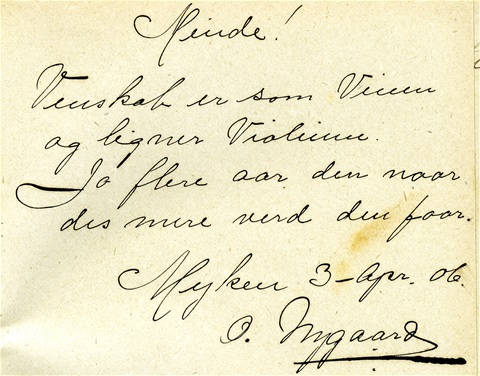 Minde!
Venskab er som Vinen
og ligner Violinen.
Jo flere aar den naar
des mere verd den faar.
Myken 3-Apr. 06.
O. Nygaard